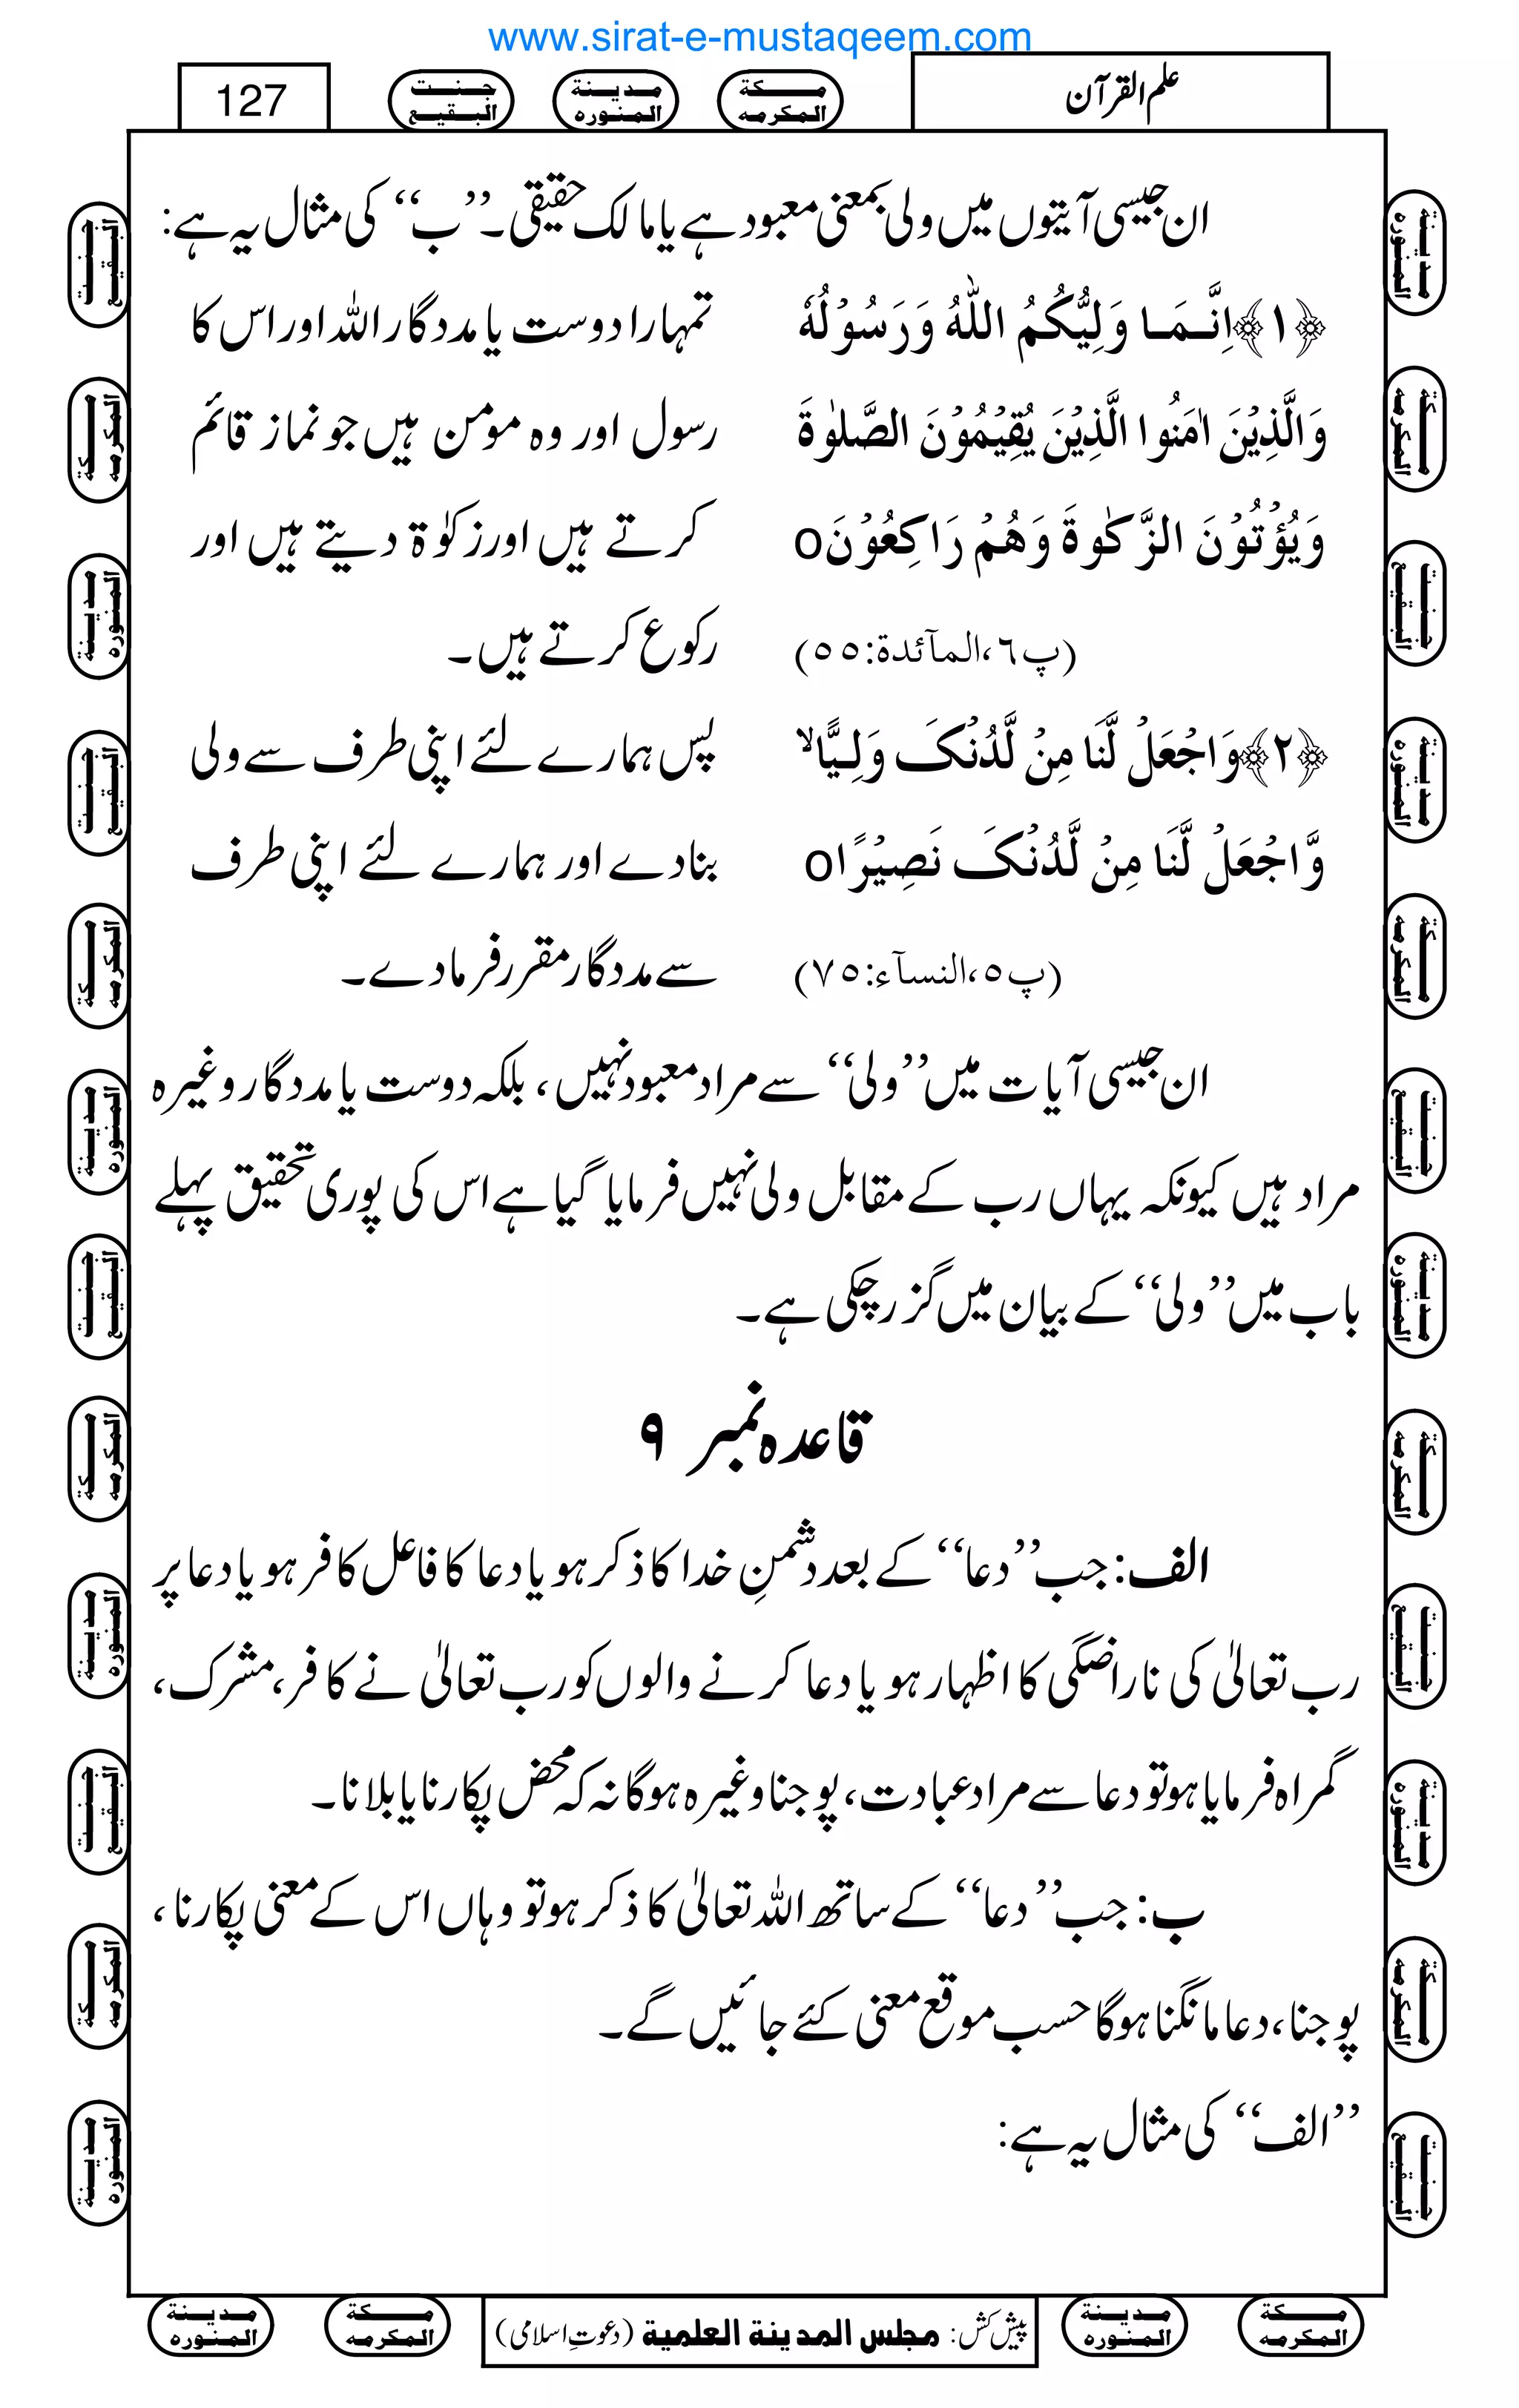 www.sirat-e-mustaqeem.com
علم القرآن
مـكة المكرمه
مدينة المنوره
جنت البقيع
127
ان جیسی آیتوں میں ولی بمعنی معبود ہے یا مالک حقیقی۔ ’’ب‘‘ کی مثال یہ ہے:
﴿۱﴾ اِنَّمَا وَلِیُّکُمُ اللّٰہُ وَرَسُوْلُہٗ تمہارا دوست یا مددگار اللہ اور اس کا
وَالَّذِیْنَ اٰمَنُوا الَّذِیْنَ یُقِیْمُوْنَ الصَّلٰوۃَ رسول اور وہ مومن ہیں جو نماز قائم
وَیُؤْتُوْنَ الزَّکٰوۃَ وَھُمْ رَاکِعُوْنَo کرتے ہیں اور زکوٰۃ دیتے ہیں اور
(پ٦،المآئدة:٥٥) رکوع کرتے ہیں۔
﴿۲﴾ وَاجْعَلْ لَّنَا مِنْ لَّدُنْکَ وَلِیًّاۙ پس ہمارے لئے اپنی طرف سے ولی
وَّاجْعَلْ لَّنَا مِنْ لَّدُنْکَ نَصِیْرًاo بنادے اور ہمارے لئے اپنی طرف
(پ٥،النسآء:٧٥) سے مددگار مقرر فرمادے۔
ان جیسی آیات میں ’’ولی‘‘ سے مراد معبود نہیں، بلکہ دوست یا مددگار وغیرہ
مراد ہیں کیونکہ یہاں رب کے مقابل ولی نہیں فرمایا گیا ہے اس کی پوری تحقیق پہلے
باب میں ’’ولی‘‘ کے بیان میں گزر چکی ہے۔
قاعدہ نمبر ۹
الف: جب ’’دعا‘‘ کے بعد دشمنِ خدا کا ذکر ہو یا دعا کا فاعل کافر ہو یا دعا پر
رب تعالیٰ کی ناراضگی کا اظہار ہو یا دعا کرنے والوں کو رب تعالیٰ نے کافر، مشرک،
گمراہ فرمایا ہو تو دعا سے مراد عبادت، پوجنا وغیرہ ہوگا نہ کہ محض پکارنا یا بلانا۔
ب: جب ’’دعا‘‘ کے ساتھ اللہ تعالیٰ کا ذکر ہو تو وہاں اس کے معنی پکارنا،
پوجنا، دعا مانگنا ہوگا حسب موقع معنی کئے جائیں گے۔
’’الف‘‘ کی مثال یہ ہے:
مـكة المكرمه
مدينة المنوره
پیش کش: مجلس المدينة العلمية (دعوتِ اسلامی)
مـكة المكرمه
مدينة المنوره